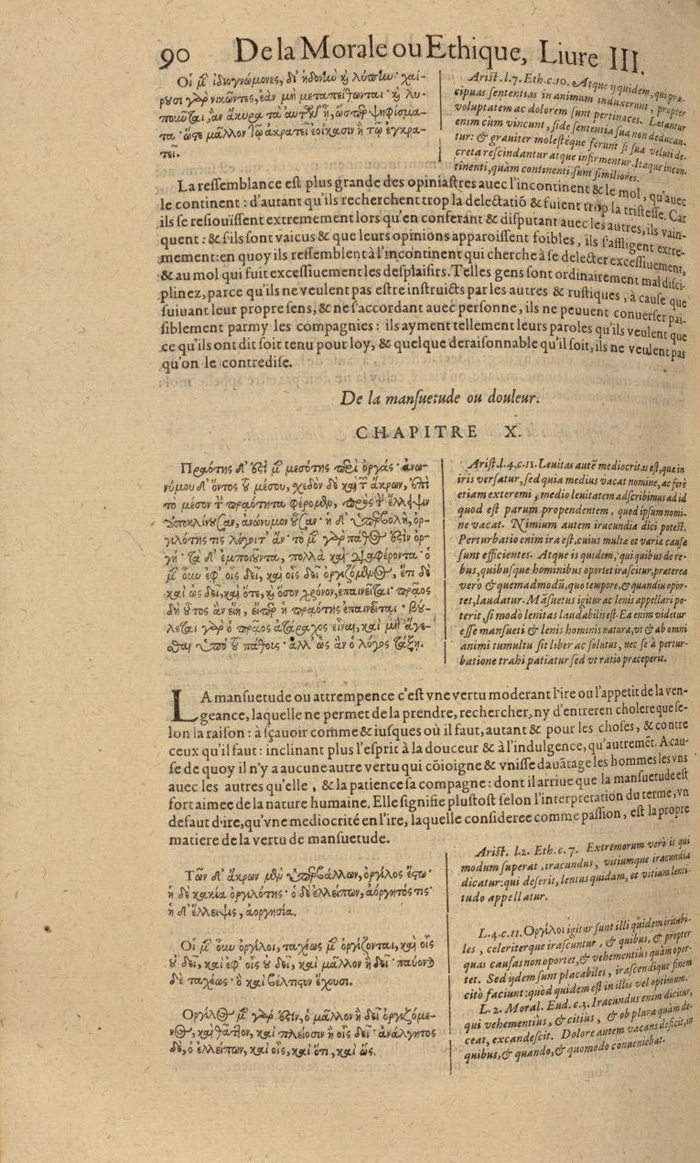 90 De la Morale ou Ethique, Liure III.
Οἱ μ̃ ἰδιογνώμονες, δι' ἡδονὴν ϗ λύπην· χαί-
ρουσι γὰρ νικῶντες, ἐὰν μὴ μεταπείθωνται· ϗ λυ-
ποῦνται, ἂν ἄκυρα τὰ αὐτῶν ᾖ, ὥσπερ ψηφίσμα-
τα· ὥστε μᾶλλον τῷ ἀκρατεῖ ἐοίκασιν ἢ τῷ ἐγκρα-
τεῖ.
Arist. l.7. Eth. c.10. Atque ij quidem, qui præ-
cipuas sententias in animum induxerunt, propter
voluptatem ac dolorem sunt pertinaces. Lætantur
enim cùm vincunt, si de sententia sua non deducan-
tur: & grauiter molestéque ferunt si sua veluti de-
creta rescindantur atque infirmentur. Itaque incon-
tinenti, quàm continenti sunt similiores.
La ressemblance est plus grande des opiniastres auec l'incontinent & le mol, qu'auec
le continent : d'autant qu'ils recherchent trop la delectatiõ & fuient trop la tristesse. Car
ils se resiouïssent extremement lors qu'en conferant & disputant auec les autres, ils vain-
quent : & s'ils sont vaicus & que leurs opinions apparoissent foibles, ils s'affligent extre-
mement: en quoy ils ressemblent à l'incontinent qui cherche à se delecter excessiuement,
& au mol qui fuit excessiuement les desplaisirs. Telles gens sont ordinairement mal disci-
plinez, parce qu'ils ne veulent pas estre instruicts par les autres & rustiques, à cause que
suiuant leur propre sens, & ne s'accordant auec personne, ils ne peuuent conuerser pai-
siblement parmy les compagnies : ils ayment tellement leurs paroles qu'ils veulent que
ce qu'ils ont dit soit tenu pour loy, & quelque deraisonnable qu'il soit, ils ne veulent pas
qu'on le contredise.
De la mansuetude ou douleur.
CHAPITRE X.
Πραότης δ' ἐστὶ μ̃ μεσότης περὶ ὀργάς· ἀνω-
νύμου δ' ὄντος τοῦ μέσου, σχεδὸν δὲ καὶ τῶν ἄκρων, ἐπὶ
τὸ μέσον τὴν πραότητα φέρομεν, πρὸς τὴν ἔλλειψιν
ἀποκλίνουσαν, ἀνώνυμον οὖσαν· ἡ δ' ὑπερβολὴ, ὀρ-
γιλότης τις λέγοιτ' ἄν· τὸ μ̃ γὰρ πάθος ἐστὶν ὀρ-
γή· τὰ δ' ἐμποιοῦντα, πολλὰ καὶ διαφέροντα· ὁ
μ̃ οὖν ἐφ' οἷς δεῖ, καὶ οἷς δεῖ ὀργιζόμενος, ἔτι δὲ
καὶ ὡς δεῖ, καὶ ὅτε, ϗ ὅσον χρόνον, ἐπαινεῖται· πρᾶος
δὴ οὗτος ἂν εἴη, εἴπερ ἡ πραότης ἐπαινεῖται· βού-
λεται γὰρ ὁ πρᾶος ἀτάραχος εἶναι, καὶ μὴ ἄγε-
σθαι ὑπὸ τοῦ πάθους· ἀλλ' ὡς ἂν ὁ λόγος τάξῃ.
Arist. l.4. c.11. Leuitas autẽ mediocritas est, quę in
iris versatur, sed quia medius vacat nomine, ac ferè
etiam extremi, medio leuitatem adscribimus ad id
quod est parum propendentem, quod ipsum nomi-
ne vacat. Nimium autem iracundia dici potest.
Perturbatio enim ira est, cuius multæ et variæ causæ
sunt efficientes. Atque is quidem, qui quibus de re-
bus, quibusque hominibus oportet irascitur, præterea
verò & quemadmodũ, quo tempore, & quandiu opor-
tet, laudatur. Mãsuetus igitur ac lenis appellari po-
terit, si modo lenitas laudabilis est. Ea enim videtur
esse mansueti & lenis hominis natura, vt & ab omni
animi tumultu sit liber ac solutus, nec se à pertur-
batione trahi patiatur sed vt ratio præceperit.
LA mansuetude ou attrempence c'est vne vertu moderant l'ire ou l'appetit de la ven-
geance, laquelle ne permet de la prendre, rechercher, ny d'entrer en cholere que se-
lon la raison : à sçauoir comme & iusques où il faut, autant & pour les choses, & contre
ceux qu'il faut: inclinant plus l'esprit à la douceur & à l'indulgence, qu'autremẽt. A cau-
se de quoy il n'y a aucune autre vertu qui cõioigne & vnisse dauãtage les hommes les vns
auec les autres qu'elle, & la patience sa compagne: dont il arriue que la mansuetude est
fort aimee de la nature humaine. Elle signifie plustost selon l'interpretation du terme, vn
defaut d'ire, qu'vne mediocrité en l'ire, laquelle consideree comme passion, est la propre
matiere de la vertu de mansuetude.
Τῶν δ' ἄκρων μὲν ὑπερβάλλων, ὀργίλος ἔστω·
ἡ δὲ κακία ὀργιλότης· ὁ δὲ ἐλλείπων, ἀόργητός τις·
ἡ δ' ἔλλειψις, ἀοργησία.
Arist. l.2. Eth. c. 7. Extremorum verò is qui
modum superat, iracundus, vitiumque iracundia
dicatur: qui deserit, lentus quidam, et vitium lenti
tudo appellatur.
Οἱ μ̃ οὖν ὀργίλοι, ταχέως μ̃ ὀργίζονται, καὶ οἷς
οὐ δεῖ, καὶ ἐφ' οἷς οὐ δεῖ, καὶ μᾶλλον ἢ δεῖ· παύονται
δὲ ταχέως· ὃ καὶ βέλτιστον ἔχουσι.
L.4. c.11. Οργίλοι igitur sunt illi quidem iritabi-
les, celeriterque irascuntur, & quibus, & propter
quas causas non oportet, & vehementiùs quàm opor-
tet. Sed ijdem sunt placabiles, irascendique finem
citò faciunt: quod quidem est in illis vel optimum.
Ὀργίλος μ̃ γάρ ἐστιν, ὁ μᾶλλον ἢ δεῖ ὀργιζόμε-
νος, καὶ θᾶττον, καὶ πλείοσιν ἢ οἷς δεῖ· ἀνάλγητος
δὲ, ὁ ἐλλείπων, καὶ οἷς, καὶ ὅτι, καὶ ὡς.
L. 2. Moral. Eud. c.3. Iracundus enim dicitur,
qui vehementiùs, & citiùs, & ob plura quàm de-
ceat, excandescit. Dolore autem vacans deficit, in
quibus, & quando, & quomodo conueniebat.